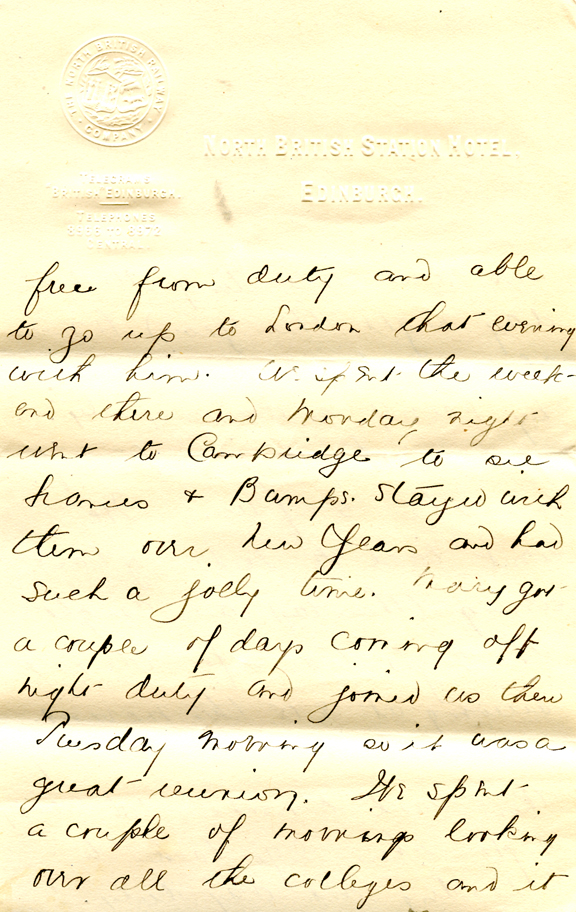 NORTH BRITISH RAILWAY COMPANY
NORTH BRITISH STATION HOTEL.
EDINBURGH.
TELEGRAMS
BRITISH EDINBURGH.
TELEPHONES
CENTRAL.
free from duty and able
to go up to London that evening
with him. We spent the week-
end there and Monday night
went to Cambridge to see
Frances & Bamps. Stayed with
them over New Years and had
such a jolly time. Mary got
a couple of days coming off
night duty and joined us there
Tuesday morning so it was a
great reunion. We spent
a couple of mornings looking
over all the colleges and it